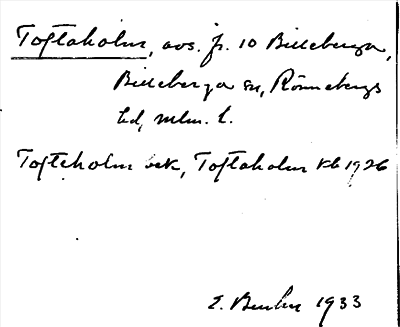 Toftaholm, avs. fr. 10 Billeberga,
Billeberga sn, Rönnebergs
hd, mlm. l.
Toftaholm bek, Toftaholm Kb 1926
E. 1933